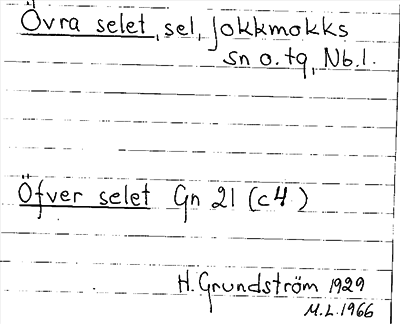 Övra selet, sel, Jokkmokks
sn o. tq, Nb.l.
Öfver selet Gn 21 (c4)
H. Grundström 1929
M.L. 1966